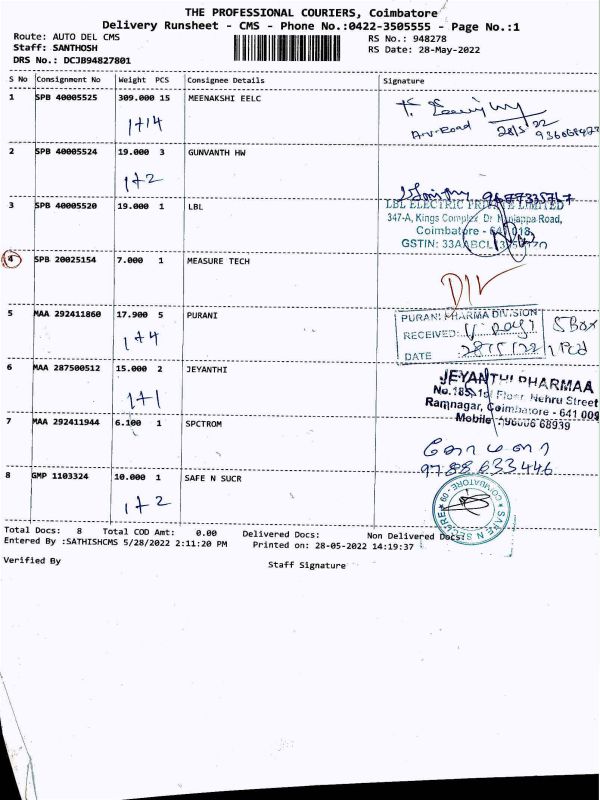 THE PROFESSIONAL COURIERS, Coimbatore
Delivery Runsheet - CMS - Phone No.:0422-3505555 - Page No.:1
Route: AUTO DEL CMS
RS No.: 948278
Staff: SANTHOSH
RS Date: 28-May-2022
DRS No.: DCJB94827801
S No Consignment No Weight PCS Consignee Details Signature
1 SPB 40005525 309.000 15 MEENAKSHI EELC
1+14
A.V.Road 28/5/22
2 SPB 40005524 19.000 3 GUNVANTH HW
1+2
3 SPB 40005520 19.000 1 LBL
LBL ELECTRIC PRIVATE LIMITED
347-A, Kings Complex Dr Nanjappa Road,
Coimbatore - 641 018.
GSTIN: 33AABCL
4 SPB 20025154 7.000 1 MEASURE TECH
D/V
5 MAA 292411860 17.900 5 PURANI
1+4
PURANI PHARMA DIVISION
RECEIVED:
5 Box
DATE : 28/5/22
6 MAA 287500512 15.000 2 JEYANTHI
1+1
JEYANTHI PHARMAA
No.185, 1st Floor, Nehru Street
Ramnagar, Coimbatore - 641 009
Mobile : 96006 68939
7 MAA 292411944 6.100 1 SPCTROM
கோமளா
9788633446
8 GMP 1103324 10.000 1 SAFE N SUCR
1+2
SAFE N SECURE
COIMBATORE - 09
Total Docs: 8 Total COD Amt: 0.00 Delivered Docs: Non Delivered Docs:
Entered By :SATHISHCMS 5/28/2022 2:11:20 PM Printed on: 28-05-2022 14:19:37
Verified By
Staff Signature